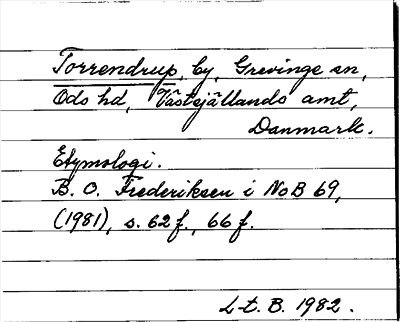 Torrendrup, by, Grevinge sn,
Ods hd, Västsjällands amt,
Danmark.
Etymologi.
B. O. Frederiksen i NoB 69,
(1981), s. 62 f., 66 f.
L-t. B. 1982.